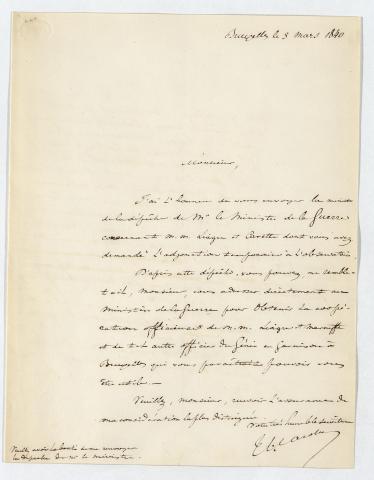 Bruxelles le 3 mars 1840
Monsieur,
J'ai l'honneur de vous envoyer la
de la dépêche de Mr le Ministre de la Guerre
concernant M.M. Liagre et dont vous avez
demandé l'adjonction temporaire à l'observatoire.
D'après cette dépêche, vous pouvez, ce semble-
t-il, monsieur, vous adresser directement au
Ministère de la Guerre pour obtenir la coopé-
ration de M.M. Liagre et
et de tel autre officier du Génie en Garnison à
Bruxelles qui vous paraîtrait pouvoir vous
être utile.—
Veuillez, monsieur, recevoir l'assurance de
ma considération la plus distinguée
Votre très humble serviteur
Veuillez avoir la bonté de me renvoyer
la dépêche de Mr le ministre.